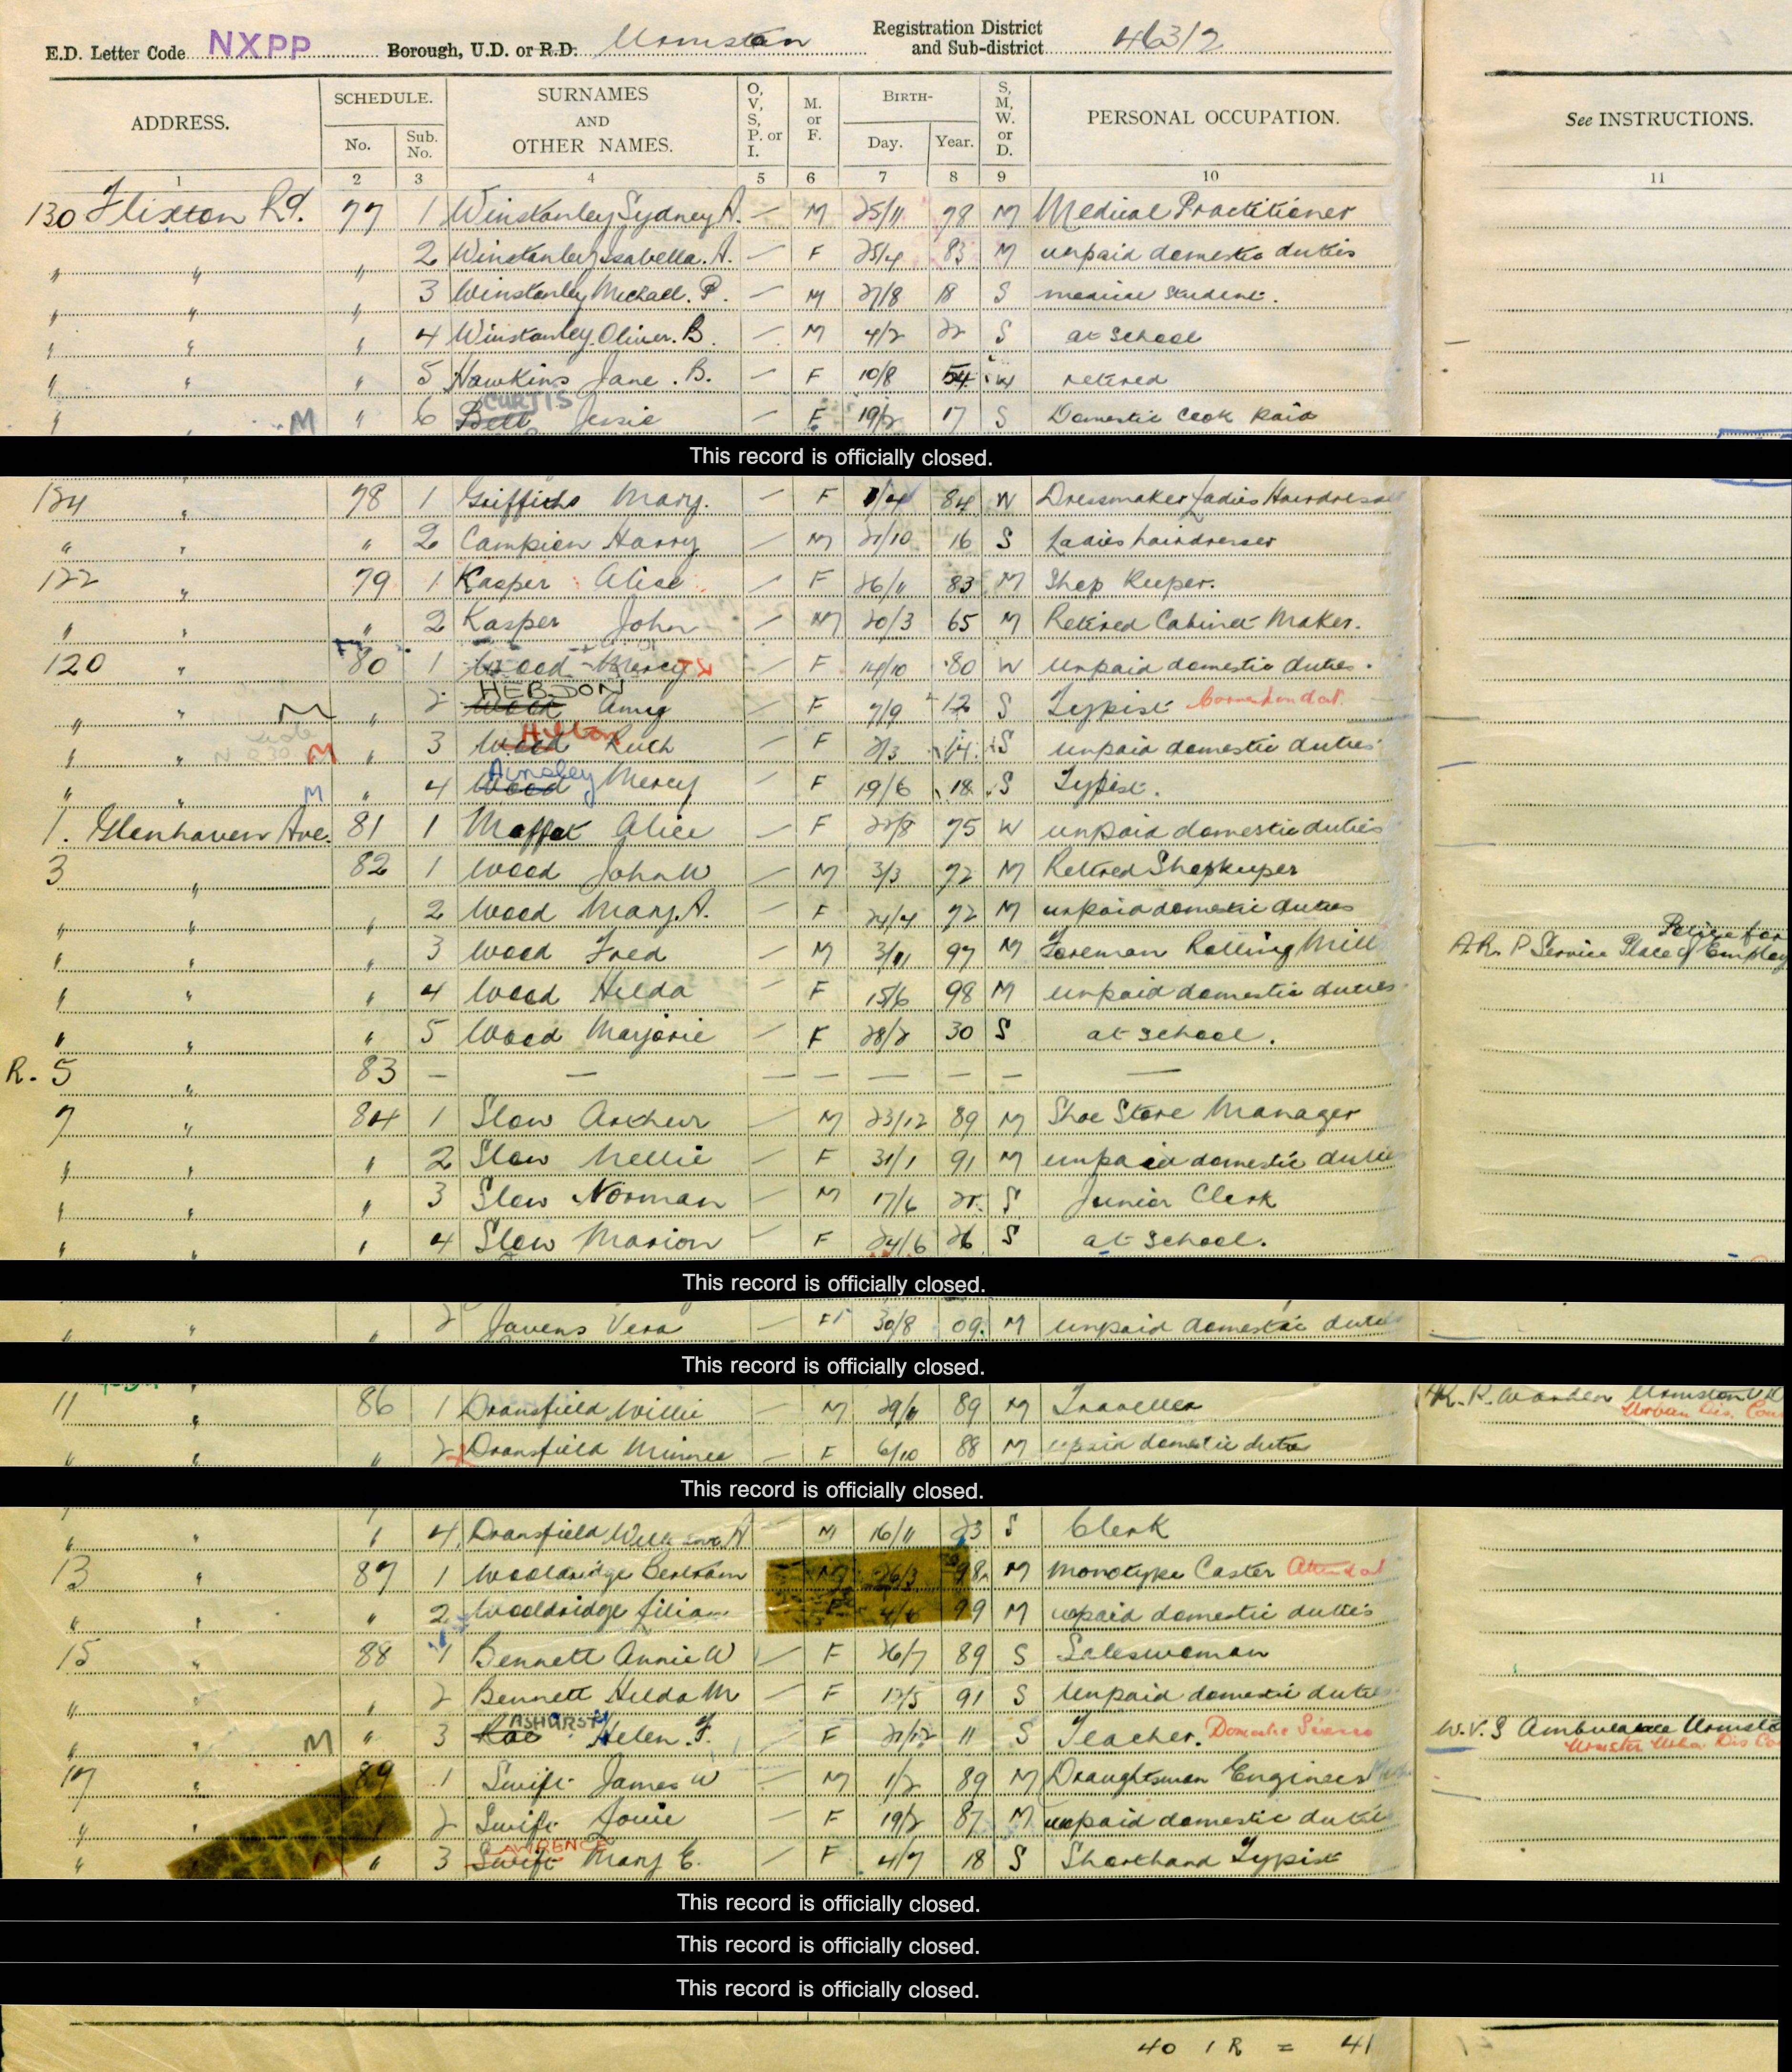 E.D. Letter Code NXPP Borough, U.D. or R.D. Urmston Registration District and Sub-district 463/2
ADDRESS. SCHEDULE. No. Sub. No. SURNAMES AND OTHER NAMES. O, V, S, P. or I. M. or F. BIRTH- Day. Year. S, M, W. or D. PERSONAL OCCUPATION. See INSTRUCTIONS.
1 2 3 4 5 6 7 8 9 10 11
130 Flixton Rd. 77 1 Winstanley Sydney A. — M 25/11 78 M Medical Practitioner
" " " 2 Winstanley Isabella. A. — F 25/4 83 M unpaid domestic duties
" " " 3 Winstanley Michael. P. — M 27/8 18 S medical student.
" " " 4 Winstanley. Oliver. B. — M 4/2 22 S at School
" " " 5 Hawkins Jane. B. — F 10/8 54 W retired
CURTIS
" " M " 6 Bett Jessie — F 19/2 17 S Domestic Cook Paid
This record is officially closed.
124 " 78 1 Griffiths Mary. — F 84 W Dressmaker Ladies Hairdresser
" " " 2 Campion Harry — M 21/10 16 S Ladies hairdresser
122 " 79 1 Kasper Alice — F 26/11 83 M Shop Keeper.
" " " 2 Kasper John — M 20/3 65 M Retired Cabinet Maker.
120 " 80 1 Wood Mercy — F 14/10 80 W unpaid domestic duties.
HEBDON
" " M " 2 Wood Amy F 7/9 12 S Typist
Hilton
" " M " 3 Wood Ruth — F 2/3 14 S unpaid domestic duties
Ainsley
" " M " 4 Wood Mercy — F 19/6 18 S Typist.
1. Glenhaven Ave. 81 1 Moffat Alice — F 22/8 75 W unpaid domestic duties
3 " 82 1 Wood John W — M 3/3 72 M Retired Shopkeeper
" " " 2 Wood Mary. A. — F 24/4 72 M unpaid domestic duties
Police for
" " " 3 Wood Fred — M 3/11 97 M Foreman Rolling Mill A.R.P Service Place of Employ
" " " 4 Wood Hilda — F 15/6 98 M unpaid domestic duties
" " " 5 Wood Marjorie — F 28/2 30 S at School.
R. 5 " 83 — — — — — — — —
7 " 84 1 Slow Arthur — M 23/12 89 M Shoe Store Manager
" " " 2 Slow Nellie — F 31/1 91 M unpaid domestic duties
" " " 3 Slow Norman — M 17/6 S Junior Clerk
" " " 4 Slow Marion — F 24/6 26 S at School.
This record is officially closed.
" " " 2 Javens Vera — F 30/8 09. M unpaid domestic duties
This record is officially closed.
11 " 86 1 Dransfield Willie — M 89 M Traveller A.R.P. Warden Urmston U D
Urban Dis. Coun
" " " 2 Dransfield Minnie — F 6/10 88 M unpaid domestic duties
This record is officially closed.
" " " 4 Dransfield William A M 16/11 23 S Clerk
13 " 87 1 Wooldridge Bertram M 26/3 98 M Monotype Caster Attendat
" " " 2 Wooldridge Lilian F 4/6 99 M unpaid domestic duties
15 " 88 1 Bennett Annie W — F 26/7 89 S Saleswoman
" " " 2 Bennett Hilda M — F 13/5 91 S Unpaid domestic duties
ASHURST
" " M " 3 Rae Helen. F. — F 21/12 11 S Teacher. Domestic Science W.V.S Ambulance Urmston
Urban Dis Co
17 " 89 1 Swift James W — M 1/2 89 M Draughtsman Engineers
" " 2 Swift — F 19/2 87 M unpaid domestic duties
LAWRENCE
" M " 3 Swift Mary E. — F 4/7 18 S Shorthand Typist
This record is officially closed.
This record is officially closed.
This record is officially closed.
40 1 R = 41